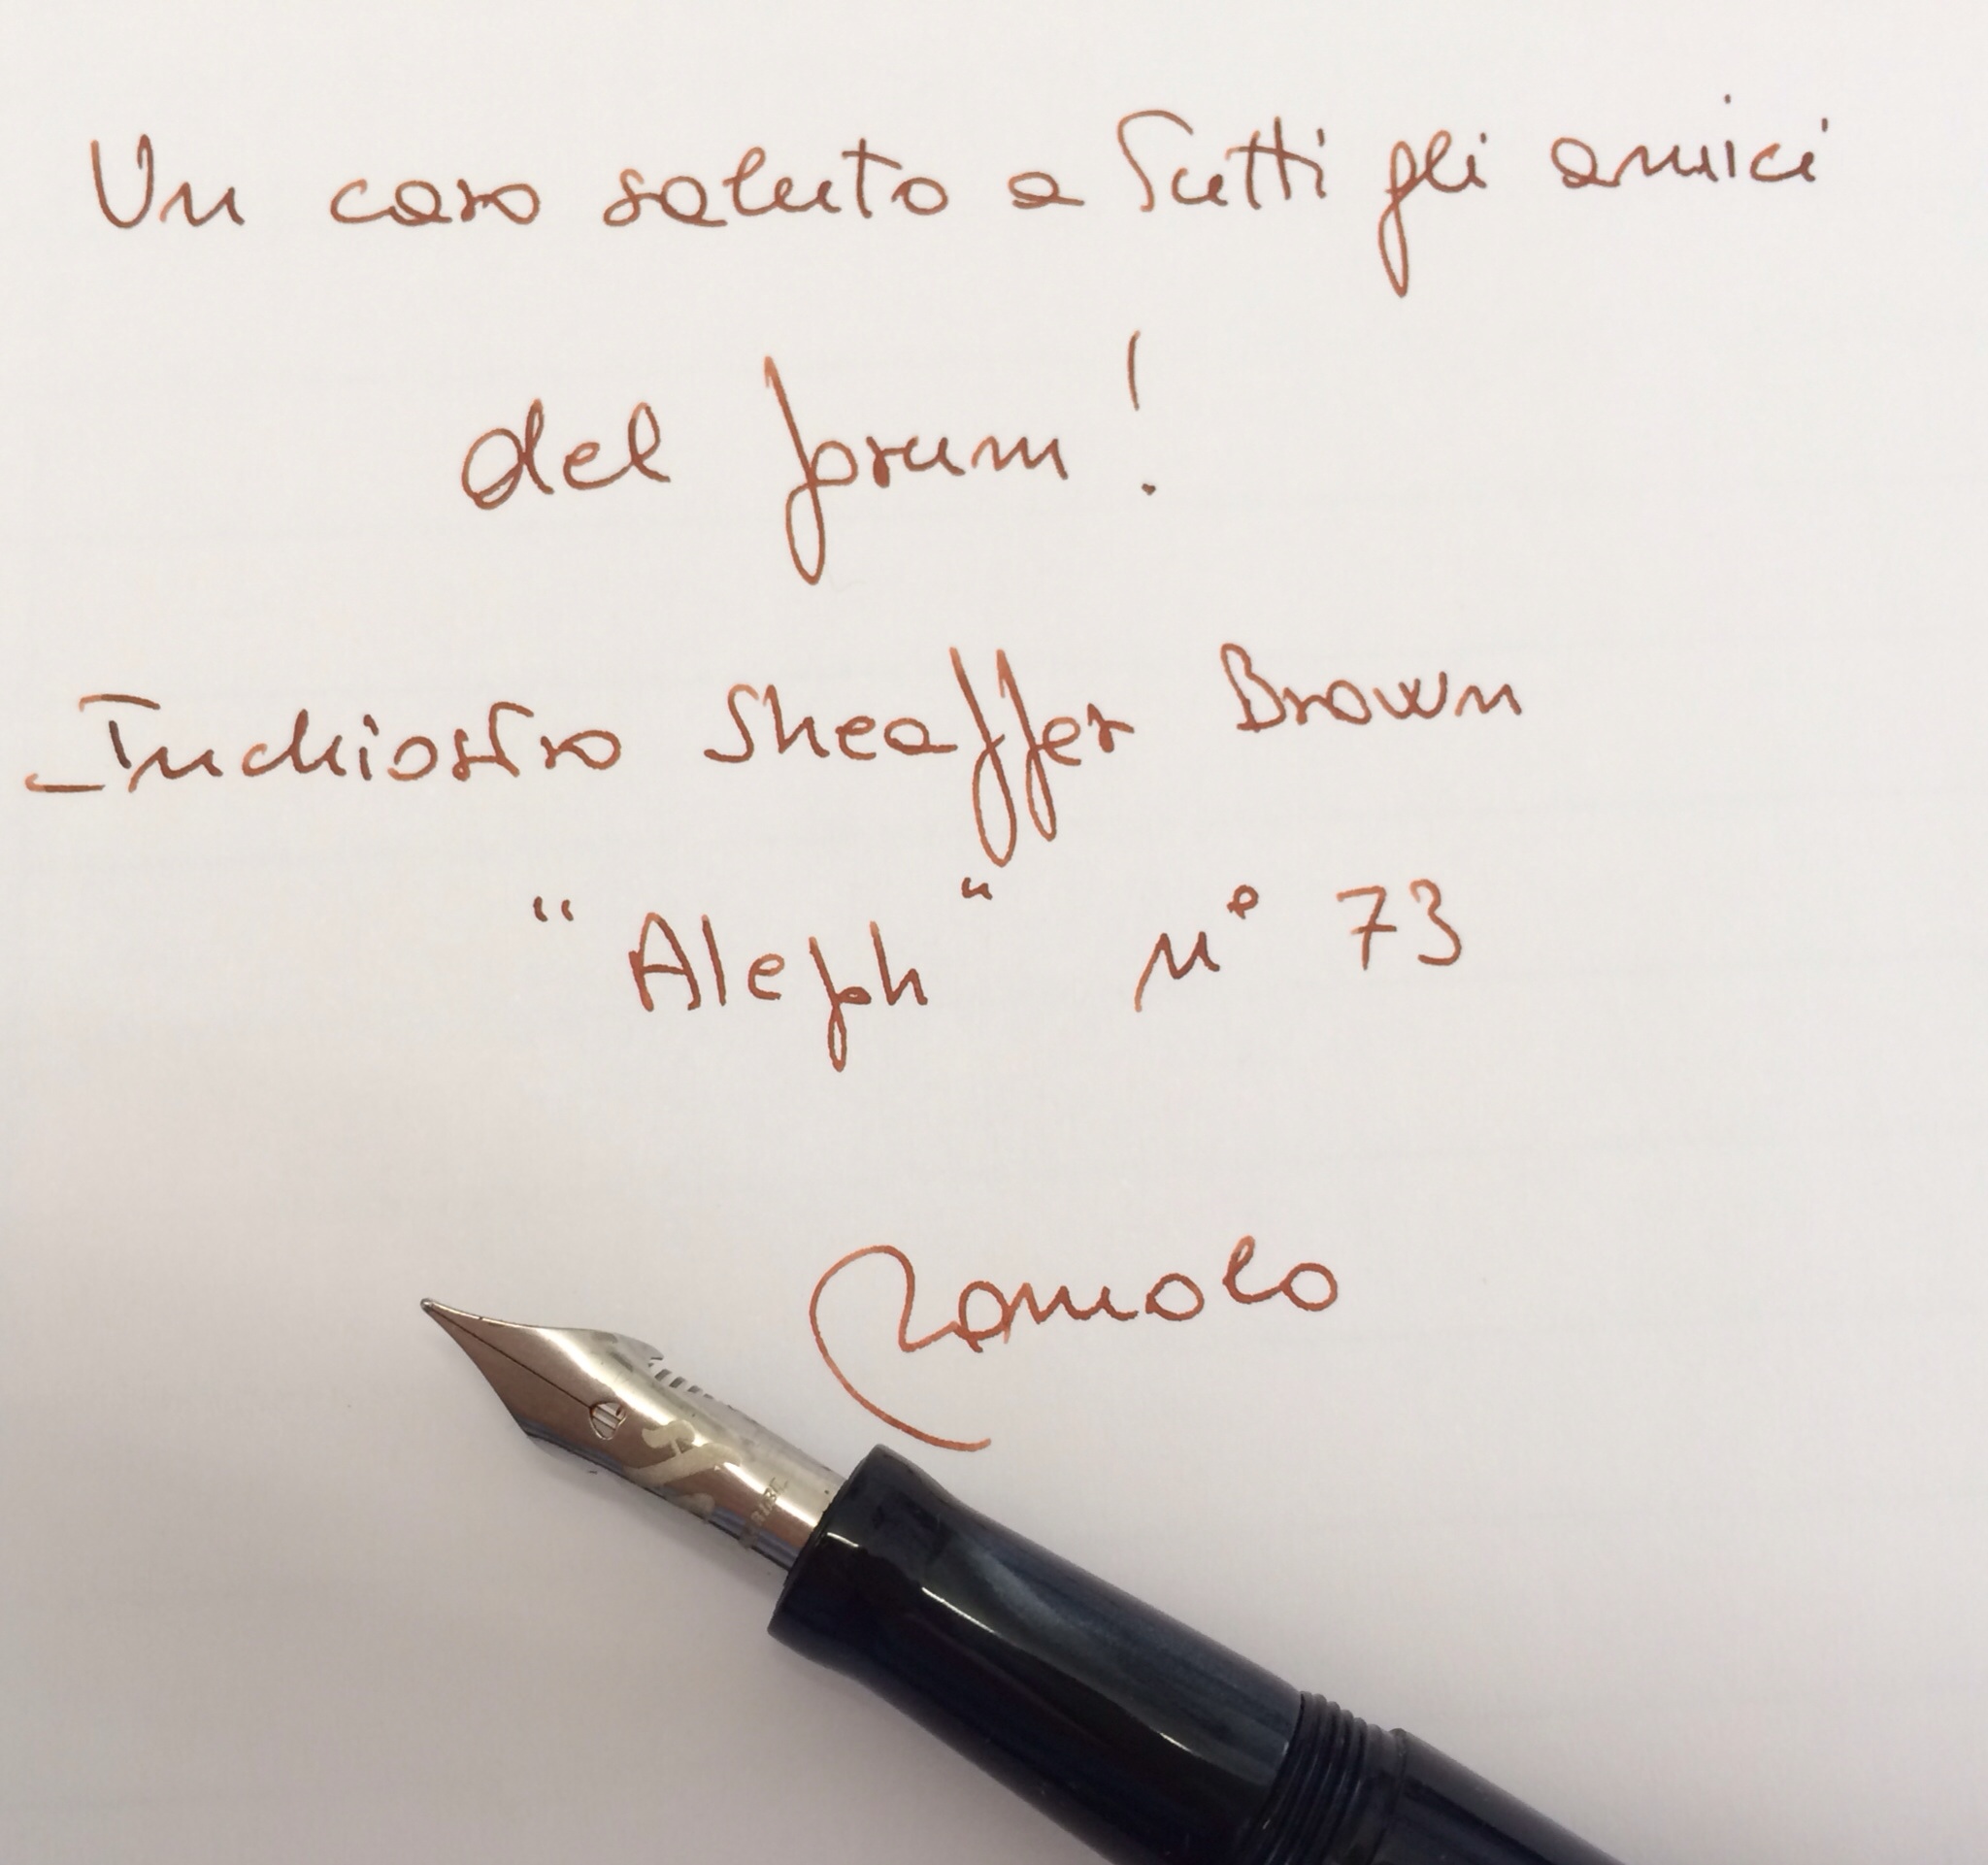 Un caro saluto a tutti gli amici
del forum!
Inchiostro Sheaffer Brown
"Aleph" n° 73
Romolo